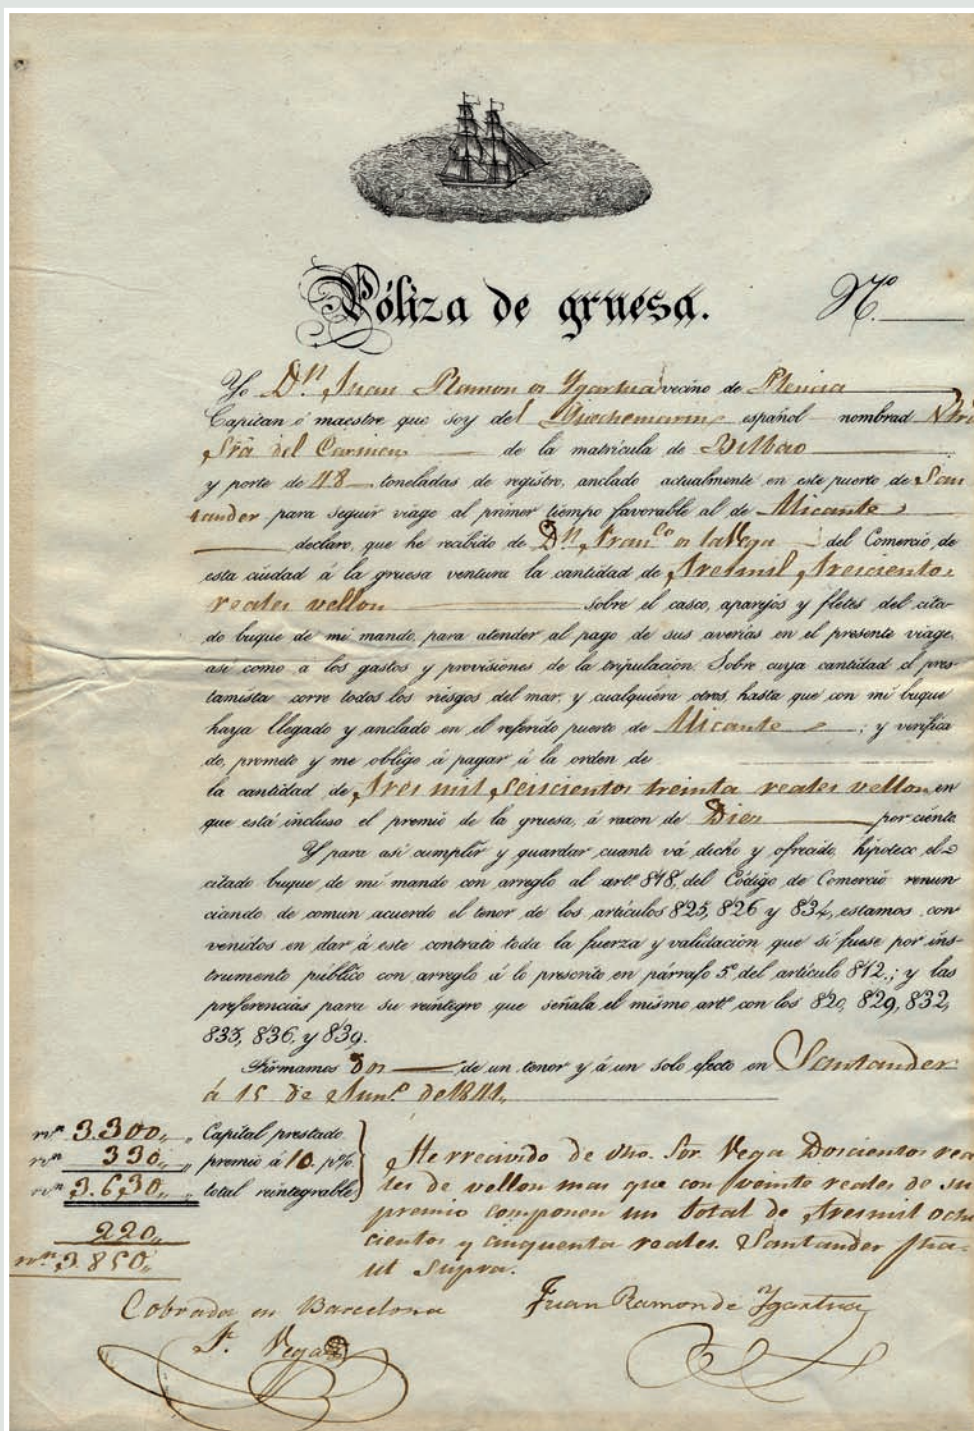 Póliza de gruesa. Nº
Yo Dn. Juan Ramon de Ygartua vecino de Plencia
Capitan ó maestre que soy del Quechemarin español nombrad Ntrã
Srã del Carmen de la matrícula de Bilbao
y porte de 48 toneladas de registro, anclado actualmente en este puerto de San
tander para seguir viage al primer tiempo favorable al de Alicante
declaro, que he recibido de Dn. Franco de la Vega del Comercio de
esta ciudad á la gruesa ventura la cantidad de tresmil trescientos
reales vellon sobre el casco, aparejos y fletes del cita-
do buque de mi mando, para atender al pago de sus averias en el presente viage,
asi como á los gastos y provisiones de la tripulación. Sobre cuya cantidad el pres-
tamista corre todos los riesgos del mar, y cualquiera otros, hasta que con mi buque
haya llegado y anclado en el referido puerto de Alicante ; y verifica
do, prometo y me obligo á pagar á la orden de
la cantidad de tres mil seiscientos treinta reales vellon en
que está incluso el premio de la gruesa, á razon de Diez por ciento.
Y para asi cumplir y guardar cuanto vá dicho y ofrecido, hipoteco el
citado buque de mi mando con arreglo al artº 818, del Código de Comercio renun
ciando de comun acuerdo el tenor de los artículos 825, 826 y 834, estamos con
venidos en dar á este contrato toda la fuerza y validación que si fuese por ins-
trumento público con arreglo á lo prescrito en párrafo 5º del artículo 812.; y las
preferencias para su reintegro que señala el mismo artº con los 820, 829, 832,
833, 836, y 839.
Firmamos dos de un tenor y á un solo efecto en Santander
á 15 de de 1841,,
rvn 3.300,, ,, Capital prestado
rvn 330,, ,, premio á 10. p%.
rvn 3.630,, ,, total reintegrable
220,,
rvn 3.850,,
He rrecivido de dho. Sor. Vega Doscientos rea
les de vellon mas que con veinte reales de su
premio componen un total de tresmil ocho
cientos y cinquenta reales. Santander fha-
ut supra.
Cobrada en Barcelona
F. Vega
Juan Ramon de Ygartua